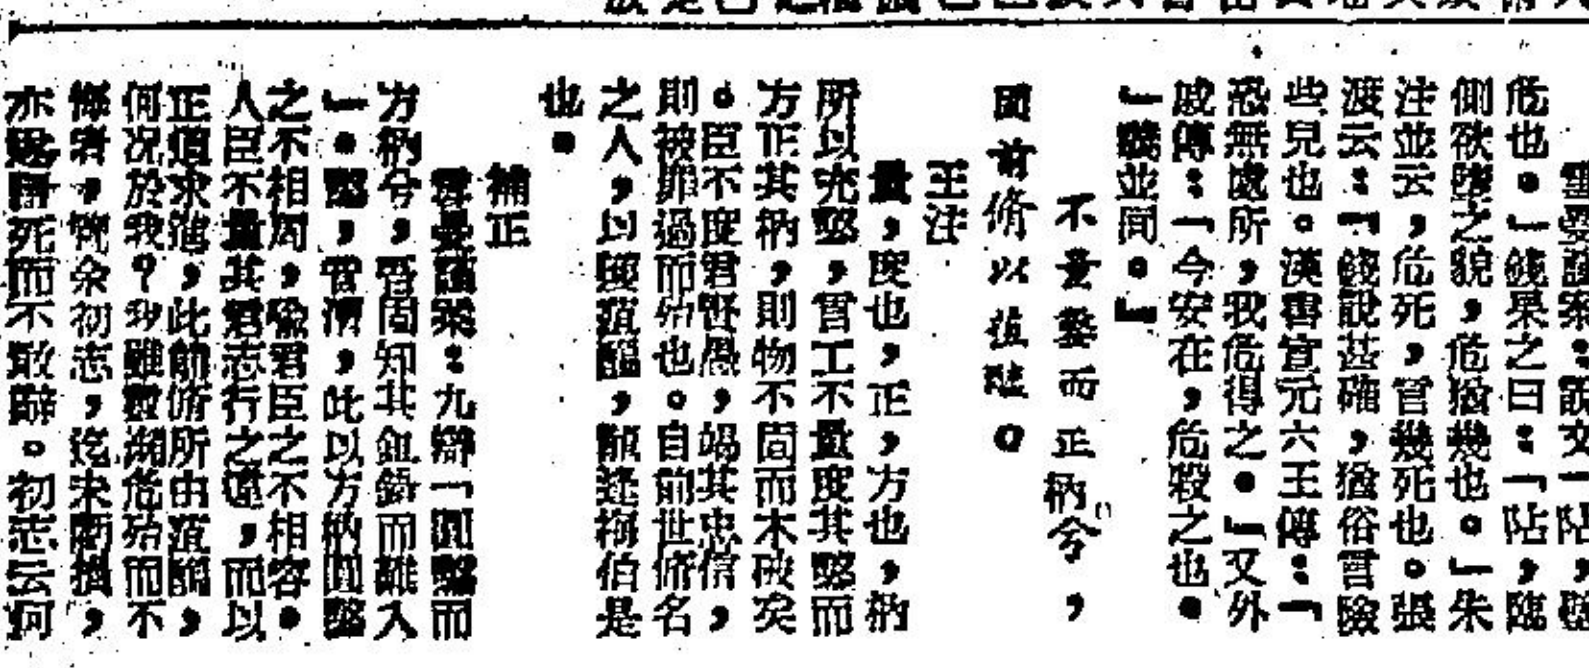 雲曼謹案：說文「阽，壁
危也。」錢果之曰：「阽，臨
側欲墮之貌，危猶幾也。」朱
注並云，危死，言幾死也。張
渡云：「錢說甚確，猶俗言險
些兒也。漢書宣元六王傳：「
恐無處所，我危得之。」又外
戚傳：「今安在，危殺之也。
」義並同。』
不量鑿而正枘兮，
固前脩以菹醢。
王注
量，度也，正，方也，枘
所以充鑿，言工不量度其鑿而
方正其枘，則物不固而木破矣
。臣不度君賢愚，竭其忠信，
則被罪過而殆也。自前世脩名
之人，以獲菹醢，龍逢梅伯是
也。
補正
雲曼謹案：九辯「圓鑿而
方枘兮，吾固知其鉏鋙而難入
」。鑿，音漕，此以方枘圓鑿
之不相周，喻君臣之不相容。
人臣不量其君志行之違，而以
正道求進，此前脩所由菹醢，
何况於我？我雖數瀕危殆而不
悔者，實余初志，迄未虧損，
亦雖瀕死而不敢辭。初志云何